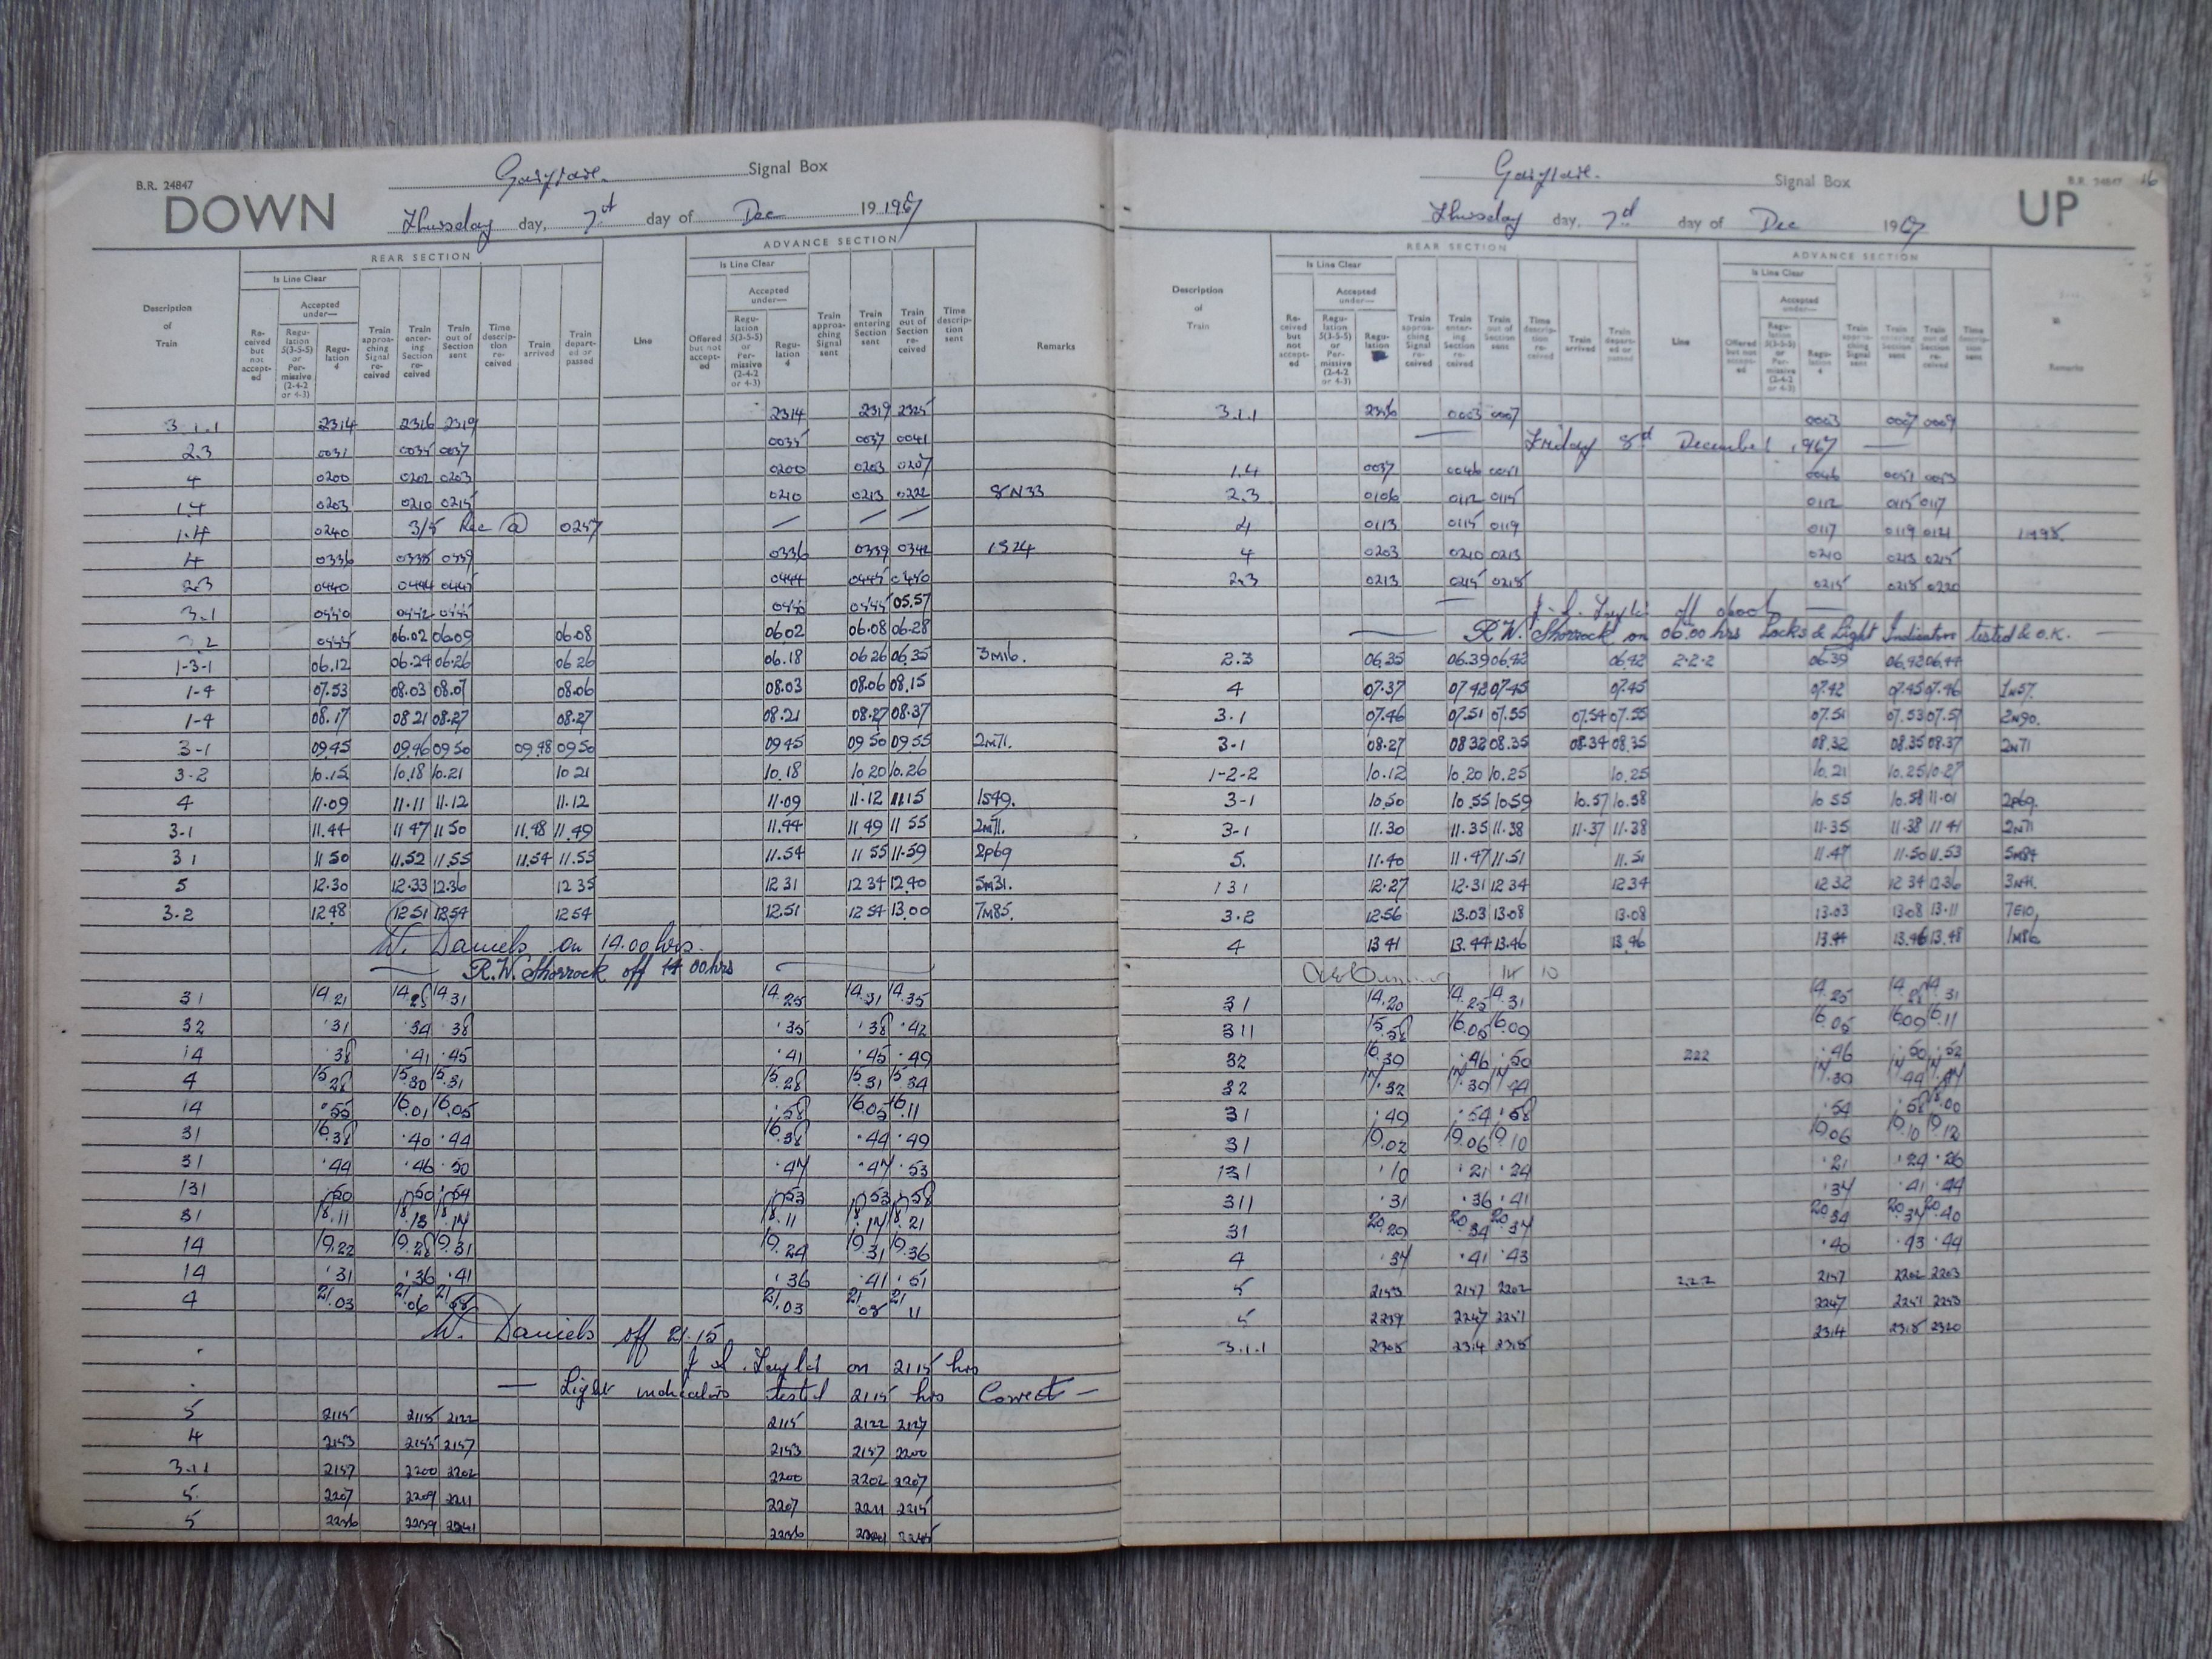 B.R. 24847
DOWN
Signal Box
Thursday day, 7 day of Dec 19 1967
Description of Train
REAR SECTION
Is Line Clear
Re-ceived but not accept-ed
Accepted under—
Regu-lation 5(3-5-5) or Per-missive (2-4-2 or 4-3)
Regu-lation 4
Train approa-ching Signal re-ceived
Train enter-ing Section re-ceived
Train out of Section sent
Time descrip-tion re-ceived
Train arrived
Train depart-ed or passed
Line
ADVANCE SECTION
Is Line Clear
Offered but not accept-ed
Accepted under—
Regu-lation 5(3-5-5) or Per-missive (2-4-2 or 4-3)
Regu-lation 4
Train approa-ching Signal sent
Train entering Section sent
Train out of Section re-ceived
Time descrip-tion sent
Remarks
3.1.1 2314 2316 2319 2314 2319 2325
2.3 0031 0035 0037 0035 0037 0041
4 0200 0202 0203 0200 0203 0207
1.4 0203 0210 0215 0210 0213 0222 8N33
1.4 0240 3/5 Rec @ 0257
4 0336 0338 0339 0336 0339 0342 1S24
2.3 0440 0444 0445 0444 0445 0450
3.1 0550 0552 0555 0550 0555 05.57
3.2 0555 06.02 06.09 06.08 06.02 06.08 06.28
1-3-1 06.12 06.24 06.26 06 26 06.18 06 26 06.35 3M16.
1-4 07.53 08.03 08.07 08.06 08.03 08.06 08.15
1-4 08.17 08 21 08.27 08.27 08.21 08.27 08.37
3-1 09 45 09.46 09 50 09 48 09 50 09 45 09 50 09 55 2M71.
3-2 10.15 10.18 10.21 10 21 10.18 10 20 10.26
4 11.09 11.11 11.12 11.12 11.09 11.12 11.15 1S49.
3-1 11.44 11 47 11 50 11.48 11.49 11.44 11 49 11 55 2M71.
3 1 11 50 11.52 11.55 11.54 11.55 11.54 11 55 11.59 2P69
5 12.30 12.33 12.36 12 35 12 31 12 34 12.40 5M31.
3.2 12 48 12 51 12 54 12 54 12.51 12 54 13.00 7M85.
W. Daniels on 14.00 hrs.
R.W. Shorrock off 14 00 hrs
31 14.21 14.25 14.31 14.25 14.31 14.35
32 .31 .34 .38 .35 .38 .42
14 .38 .41 .45 .41 .45 .49
4 15.28 15.30 15.31 15.28 15.31 15.34
14 .55 16.01 16.05 .58 16.05 16.11
31 16.38 .40 .44 16.38 .44 .49
31 .44 .46 .50 .47 .47 .53
131 .50 .50 .54 .53 .53 .58
31 18.11 18.13 18.17 18.11 18.17 18.21
14 19.22 19.28 19.31 19.24 19.31 19.36
14 .31 .36 .41 .36 .41 .51
4 21.03 21.06 21.08 21.03 21.08 21 11
W. Daniels off 21.15
on 2115 hrs
— Light indicators tested 2115 hrs Correct —
5 2115 2118 2122 2115 2122 2127
4 2153 2155 2157 2153 2157 2200
3.1.1 2157 2200 2202 2200 2202 2207
5 2207 2209 2211 2207 2211 2215
5 2236 2239 2241 2236 2241 2245
Signal Box
B.R. 24847 16
UP
Thursday day, 7 day of Dec 1967
Description of Train
REAR SECTION
Is Line Clear
Re-ceived but not accept-ed
Accepted under—
Regu-lation 5(3-5-5) or Per-missive (2-4-2 or 4-3)
Regu-lation
Train approa-ching Signal re-ceived
Train enter-ing Section re-ceived
Train out of Section sent
Time descrip-tion re-ceived
Train arrived
Train depart-ed or passed
Line
ADVANCE SECTION
Is Line Clear
Offered but not accept-ed
Accepted under—
Regu-lation 5(3-5-5) or Per-missive (2-4-2 or 4-3)
Regu-lation 4
Train approa-ching Signal sent
Train entering Section sent
Train out of Section re-ceived
Time descrip-tion sent
Remarks
3.1.1 2356 0003 0007 0003 0007 0009
Friday 8 December 1967
1.4 0037 0046 0051 0046 0051 0053
2.3 0106 0112 0115 0112 0115 0117
4 0113 0115 0119 0117 0119 0121
4 0203 0210 0213 0210 0213 0215
2.3 0213 0215 0218 0215 0218 0220
off 0600
R.W. Shorrock on 06.00 hrs Locks & Light Indicators tested & O.K.
2.3 06.35 06.39 06.42 06.42 2-2-2 06.39 06.42 06.44
4 07.37 07 42 07.45 07.45 07.42 07.45 07.46 1N57.
3.1 07.46 07.51 07.55 07.54 07.55 07.51 07.53 07.57 2N90.
3-1 08.27 08 32 08.35 08.34 08.35 08.32 08.35 08.37 2N71
1-2-2 10.12 10.20 10.25 10.25 10.21 10.25 10.27
3-1 10.50 10.55 10 59 10.57 10.58 10 55 10.58 11.01 2P69.
3-1 11.30 11.35 11.38 11.37 11.38 11.35 11.38 11 41 2N71
5. 11.40 11.47 11.51 11.51 11.47 11.50 11.53 5M84
131 12.27 12.31 12 34 12 34 12 32 12 34 12 36 3N41.
3.2 12.56 13.03 13.08 13.08 13.03 13.08 13.11 7E10.
4 13 41 13.44 13.46 13.46 13.44 13.46 13.48 1M86
14 10
31 14.20 14.25 14.31 14.25 14.28 14.31
311 15.58 16.05 16.09 16.05 16.09 16.11
32 16.39 .46 .50 222 .46 .50 .52
32 17.32 17.39 17.44 17.39 17.44 17.47
31 .49 .54 .58 .54 .58 18.00
31 19.02 19.06 19.10 19.06 19.10 19.12
131 .10 .21 .24 .21 .24 .26
311 .31 .36 .41 .37 .41 .44
31 20.29 20.34 20.37 20.34 20.37 20.40
4 .37 .41 .43 .40 .43 .44
5 2153 2157 2202 2.2.2 2157 2202 2203
5 2239 2247 2251 2247 2251 2253
3.1.1 2308 2314 2318 2314 2318 2320